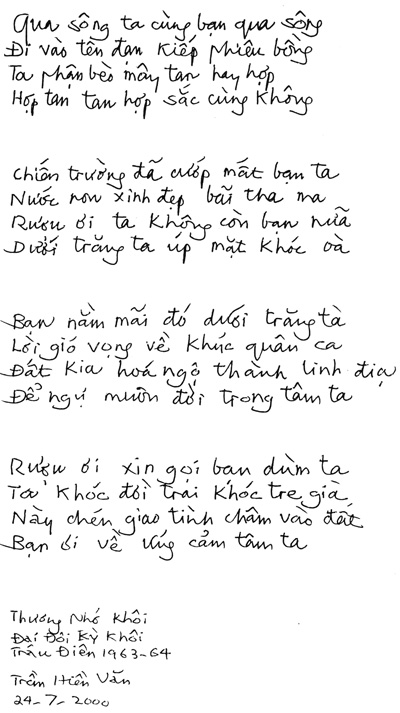 Qua sông ta cùng bạn qua sông
Đi vào tên đạn kiếp phiêu bồng
Ta phận bèo mây tan hay hợp
Hợp tan tan hợp sắc cùng không
Chiến trường đã cướp mất bạn ta
Nước non xinh đẹp bãi tha ma
Rượu ơi ta không còn bạn nữa
Dưới trăng ta úp mặt khóc oà
Bạn nằm mãi đó dưới trăng tà
Lời gió vọng về khúc quân ca
Đất kia hoá ngộ thành linh địa
Để ngự muôn đời trong tâm ta
Rượu ơi xin gọi bạn dùm ta
Ta khóc đời trai khóc tre già
Này chén giao tình châm vào đất
Bạn ơi về ứng cảm tâm ta
Thương Nhớ Khôi
Đại Đội Kỳ Khôi
Trâu Điên 1963-64
Trần Hiền Văn
24-7-2000